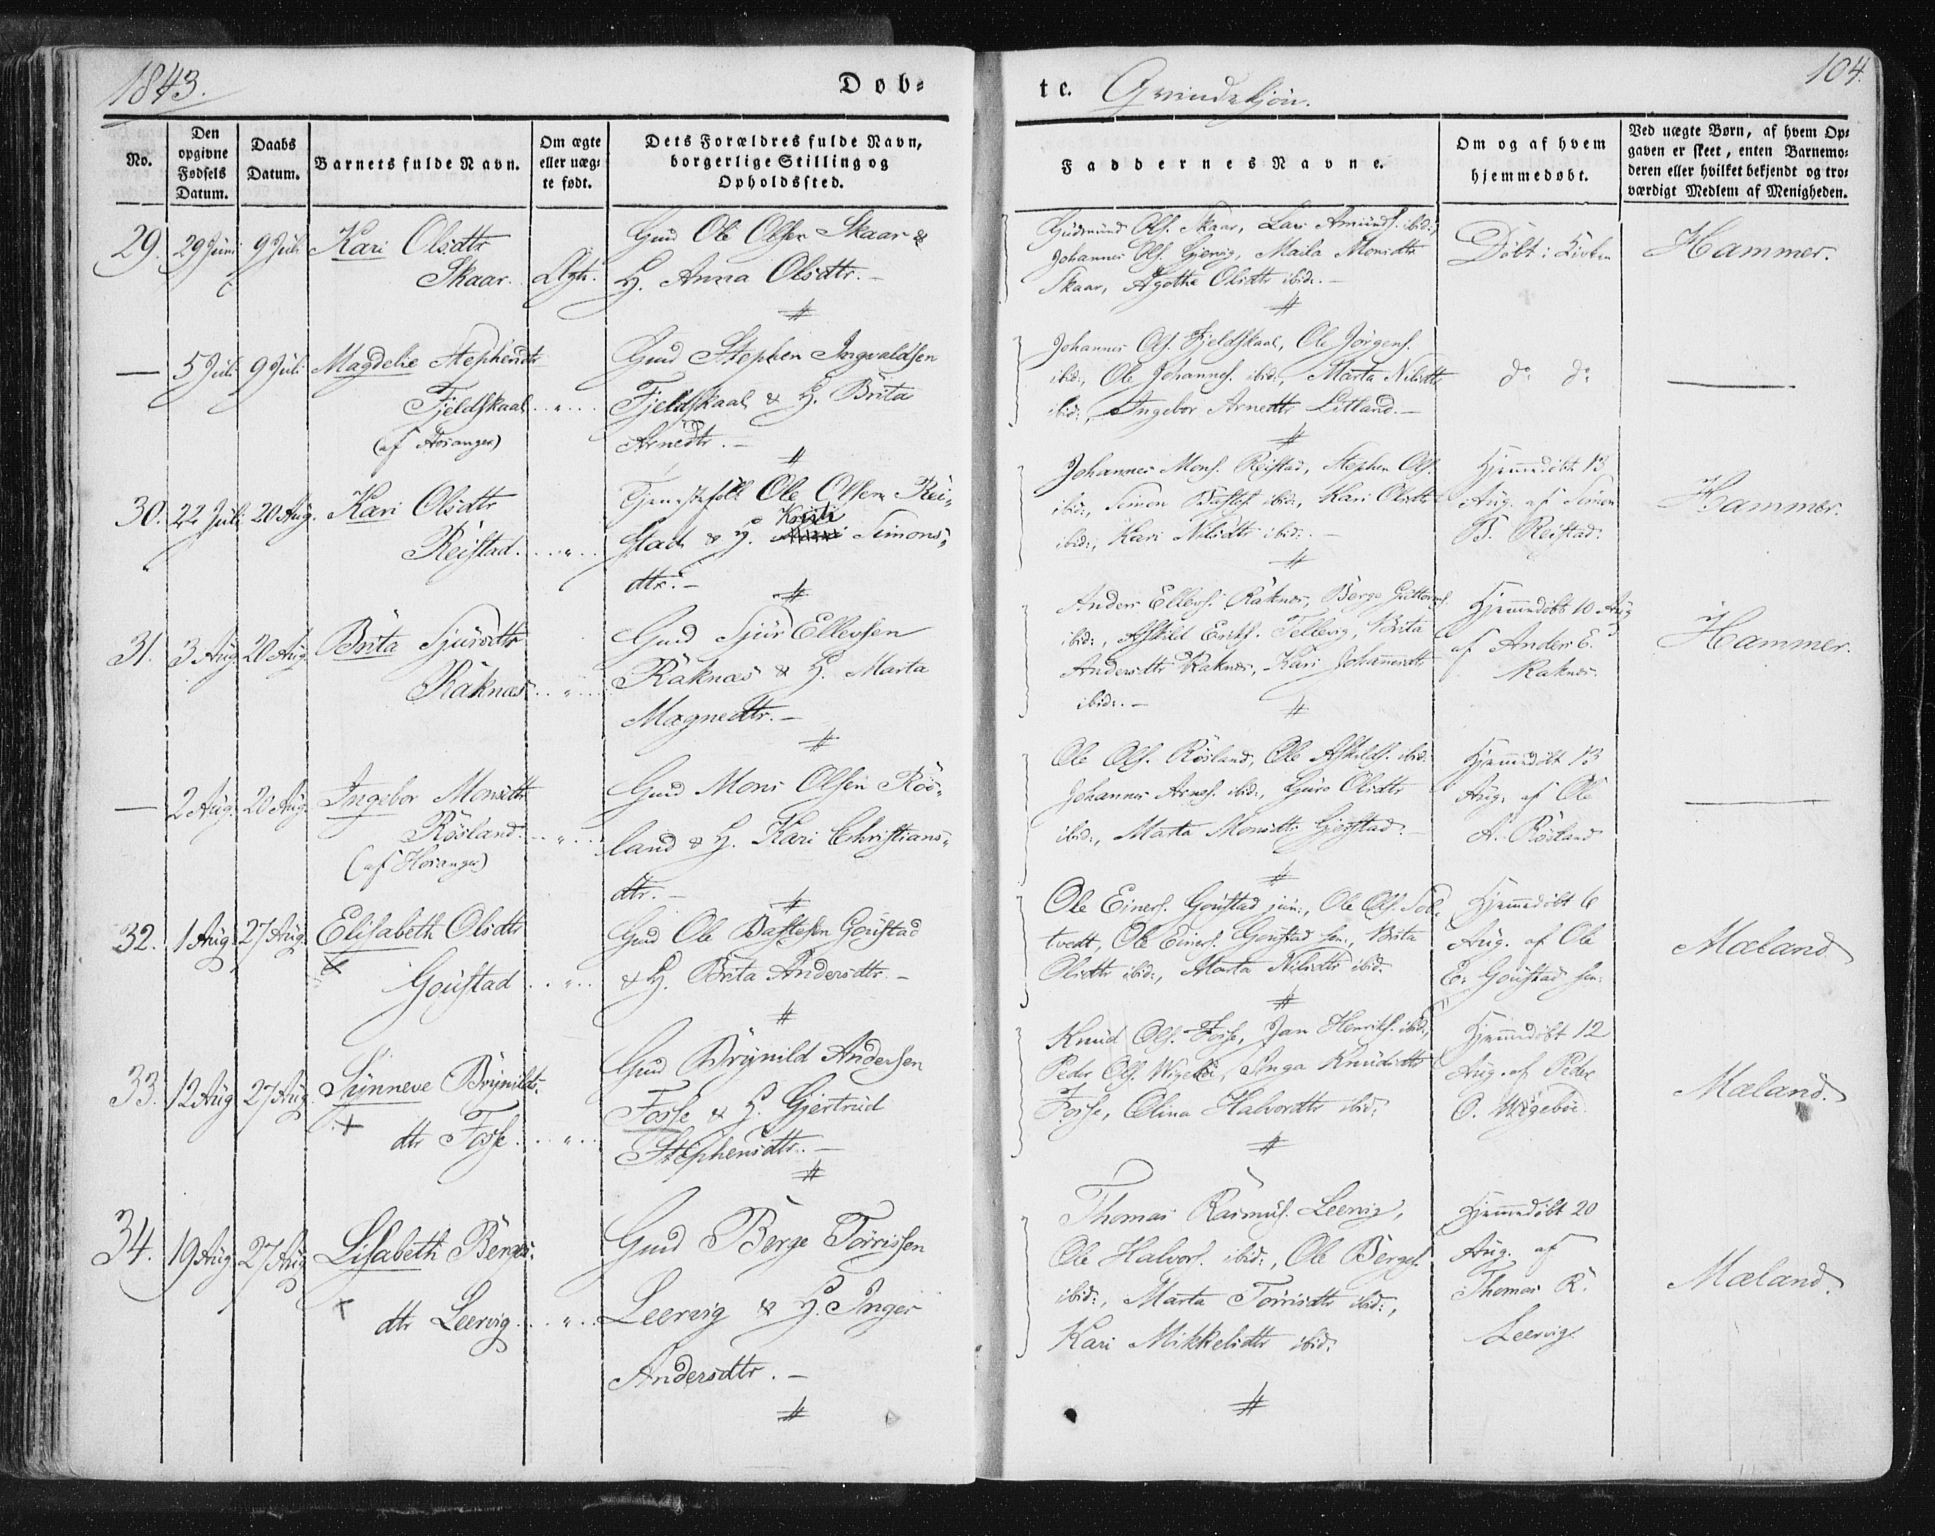 1843.
Dob-
te.
Qvindekjön.
104.
No.
Den opgivne Fødsels Datum.
Daabs Datum.
Barnets fulde Navn.
Om ægte eller uægte født.
Dets Forældres fulde Navn, borgerlige Stilling og Opholdssted.
Faddernes Navne.
Om og af hvem hjemmedøbt.
Ved uægte Børn, af hvem Opgaven er skeet, enten Barnemoderen eller hvilket bekjendt og troværdigt Medlem af Menigheden.
29. 29 Juni 9 Juli Kari Olsdtr Gmd Ole Olsen Skaar &
Skaar. Ægte. H. Anna Olsdtr.-
Gudmund Ols. Skaar, Lars Amunds. ibid:,
Johannes Ols. Gjervig, Maila Monsdtr
Skaar, Agothe Olsdtr ibid:.-
Döbt i Kirken
Hammer.
— 5 Juli 9 Juli Magdelie Stephensdtr Gmd Stephen Ingvaldsen
Fjeldskaal " Fjeldskaal & H. Brita
(af Hosanger) Arnedtr.-
Johannes Ols. Fjeldskaal, Ole Jörgens.
ibid:, Ole Johannes. ibid:, Marta Nilsdtr
ibid:, Ingebor Arnedtr Litland.-
do do
—
30. 22 Juli 20 Aug. Kari Olsdtr Tjenestefolk Ole Olsen Rei-
Kristi
Reistad. " stad & H. Simons-
dtr.-
Johannes Mons. Reistad, Stephen Ols.
ibid:, Simon Bastes. ibid:, Kari Olsdtr
ibid:, Kari Nilsdtr ibid:.-
Hjemmedöbt 13
Aug. af Simon
B. Reistad.
Hammer.
31. 3 Aug. 20 Aug. Brita Sjursdtr Gmd Sjur Ellevsen
Raknæs " Raknæs & H. Marta
Magnedtr.-
Anders Ellevs. Raknes, Börge Guttorms.
ibid:, Askild Eriks. Tellevig, Brita
Andersdtr Raknes, Kari Johannesdtr
ibid:.-
Hjemmedöbt 10 Aug
af Anders E.
Raknes.
Hammer.
— 2 Aug. 20 Aug. Ingebor Monsdtr Gmd Mons Olsen Rös-
Rösland. " land & H. Kari Christians-
(af Hosanger) dtr.-
Ole Ols. Rösland, Ole Askilds. ibid:
Johannes Arnes. ibid:, Guro Olsdtr
ibid:, Marta Monsdtr Gjerstad.-
Hjemmedöbt 13
Aug. af Ole
A. Rösland
—
32. 1 Aug. 27 Aug. Elisabeth Olsdtr Gmd Ole Bastesen Goustad
Goustad " & H. Brita Andersdtr.-
Ole Einers. Goustad jun:, Ole Ols. Sol-
tvedt, Ole Einers. Goustad sen., Brita
Olsdtr ibid:, Marta Nilsdtr ibid.
Hjemmedöbt 6
Aug. af Ole
E. Goustad sen.
Mæland
33. 12 Aug 27 Aug. Synneve Brynilds- Gmd Brynild Andersen
dtr Fosse. " Fosse & H. Gjertrud
Stephensdtr.-
Knud Ols. Fosse, Jan Henriks. ibid:,
Peder Ols. Wigebö, Inga Knudsdtr
Fosse, Olina Halvordtr ibid:
Hjemmedöbt 12
Aug. af Peder
O. Wigeböe
Mæland.
34. 19 Aug 27 Aug Lisabeth Berges- Gmd Berge Torrissen
dtr Leervig. " Leervig & H. Inger
Andersdtr.-
Thomas Rasmus. Leervig,
Ole Halvors. ibid:, Ole Berges.
ibid:, Marta Torrisdtr ibid:,
Kari Mikkelsdtr ibid:
Hjemmedöbt 20
Aug. af
Thomas R.
Leervig.
Mæland.